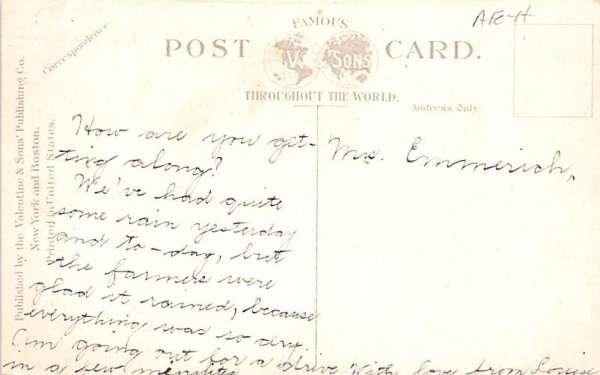 AE-H
FAMOUS
POST CARD.
V. & SONS
THROUGHOUT THE WORLD.
Correspondence
Address Only.
Published by the Valentine & Sons' Publishing Co.
New York and Boston.
Printed in United States.
How are you get-
ting along?
We've had quite
some rain yesterday
and to-day, but
the farmers were
glad it rained, because
everything was so dry.
Am going out for a drive
in a few minutes
With love from Louise
Mrs. Emmerich,